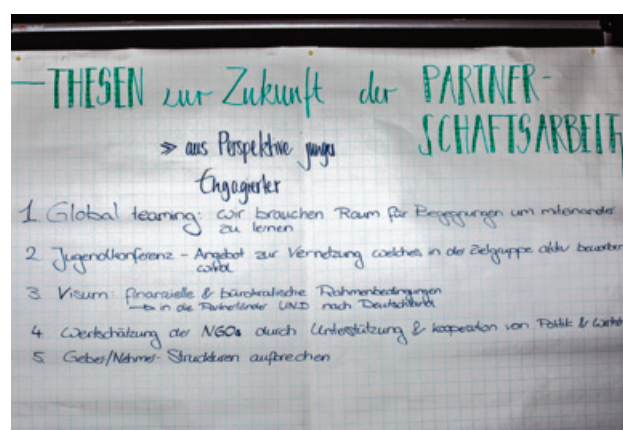 — THESEN zur Zukunft der PARTNER-
SCHAFTSARBEIT
» aus Perspektive junger
Engagierter
1. Global learning: wir brauchen Raum für Begegnungen um miteinander
zu lernen
2. Jugendkonferenz - Angebot zur Vernetzung welches in der Zielgruppe aktiv beworben
wird
3. Visum: finanzielle & bürokratische Rahmenbedingungen
→ in die Partnerländer UND nach Deutschland
4. Wertschätzung der NGOs durch Unterstützung & kooperation von Politik &
5. Geber/Nehmer-Strukturen aufbrechen